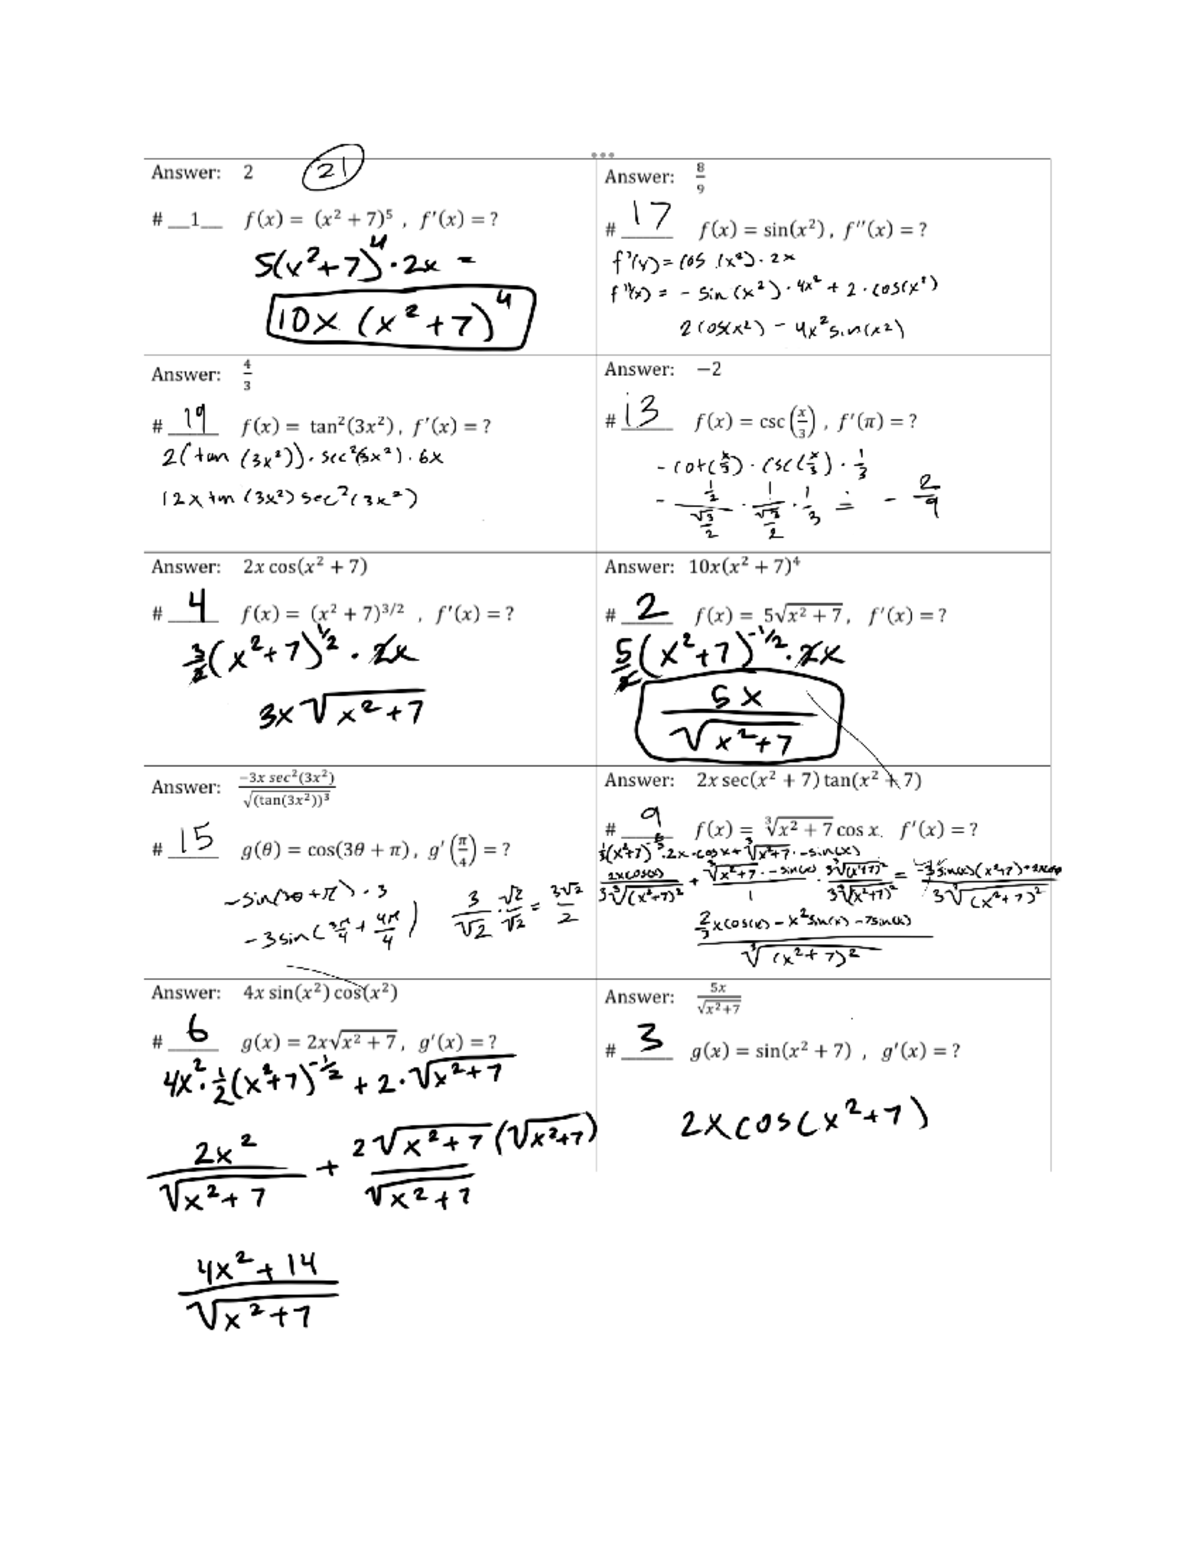 Answer: 2 (21)
# __1__ f(x) = (x² + 7)⁵ , f′(x) = ?
5(x²+7)⁴ · 2x =
10x (x²+7)⁴
Answer: 8/9
# 17 f(x) = sin(x²) , f′′(x) = ?
f'(x) = cos (x²) · 2x
f''(x) = - sin (x²) · 4x² + 2 · cos(x²)
2 cos(x²) - 4x² sin(x²)
Answer: 4/3
# 19 f(x) = tan²(3x²) , f′(x) = ?
2(tan (3x²)) · sec²(3x²) · 6x
12x tan (3x²) sec²(3x²)
Answer: −2
# 13 f(x) = csc(x/3) , f′(π) = ?
- cot(x/3) · csc(x/3) · 1/3
- (1/2)/(√3/2) · 1/(√3/2) · 1/3 = - 2/9
Answer: 2x cos(x² + 7)
# 4 f(x) = (x² + 7)^(3/2) , f′(x) = ?
3/2 (x²+7)^(1/2) · 2x
3x √(x²+7)
Answer: 10x(x² + 7)⁴
# 2 f(x) = 5√(x² + 7) , f′(x) = ?
5/2 (x²+7)^(-1/2) · 2x
5x/√(x²+7)
Answer: −3x sec²(3x²)/√(tan(3x²))³
# 15 g(θ) = cos(3θ + π) , g′(π/4) = ?
-sin(3θ+π) · 3
-3sin(3π/4 + 4π/4) 3/√2 · √2/√2 = 3√2/2
Answer: 2x sec(x² + 7) tan(x² + 7)
# 9 f(x) = ∛(x² + 7) cos x. f′(x) = ?
2xcos(x)/3∛(x²+7)² + ∛(x²+7) · -sin(x)/1 · 3∛(x²+7)²/3∛(x²+7)² = -3sin(x)(x²+7)+2xcosx/3∛(x²+7)²
2/3 xcos(x) - x² sin(x) - 7sin(x)/∛(x²+7)²
Answer: 4x sin(x²) cos(x²)
# 6 g(x) = 2x√(x² + 7) , g′(x) = ?
4x² · 1/2 (x²+7)^(-1/2) + 2 · √(x²+7)
2x²/√(x²+7) + 2√(x²+7) (√(x²+7))/√(x²+7)
4x² + 14/√(x²+7)
Answer: 5x/√(x²+7)
# 3 g(x) = sin(x² + 7) , g′(x) = ?
2x cos(x²+7)